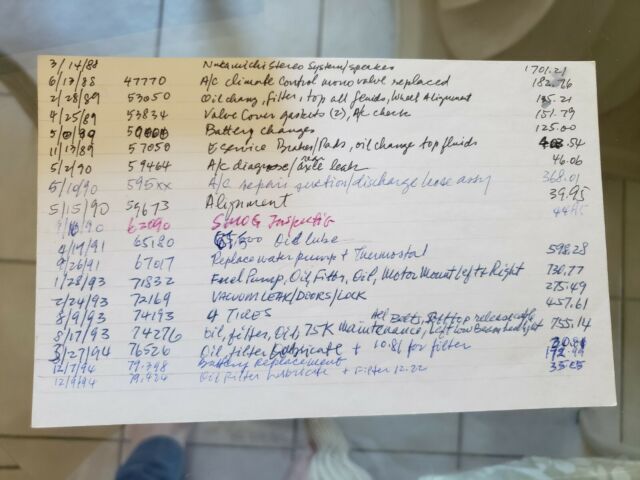 3/14/88 Nakamichi Stereo System/speakers 1701.21
6/17/88 47770 A/C climate Control mono valve replaced 182.76
2/28/89 53050 Oil chang, filter, top all fluids, Wheel Alignment
4/25/89 53834 Valve Cover gaskets (2), A/c check 151.79
Battery changes 125.00
11/13/89 57050 Eservice Brakes/Pads, oil change top fluids
5/2/90 59464 A/c diagnose/ axle leak 46.06
5/10/90 595xx A/c repair suction/discharge hose assy 368.01
5/15/90 59673 Alignment 39.95
63090 SMOG Inspectio
4/19/91 65180 Oil lube
9/26/91 67017 Replace water pump + Thermostat 598.28
1/28/93 71832 Fuel Pump, Oil, Filter, Oil, Motor Mount Left & Right 730.77
2/24/93 72169 VACUUM LEAK/DOORS/LOCK 275.49
8/9/93 74193 4 TIRES 457.61
8/17/93 74276 Oil, filter, Oil, 75K Maintenance, Left Low Beam headlight 755.14
76526 Oil, filter Lubricate + 10.86 for filter
12/7/94 79,798 Battery Replacement
12/9/94 79,924 Oil Filter Lubricate + Filter 12.22 35.05